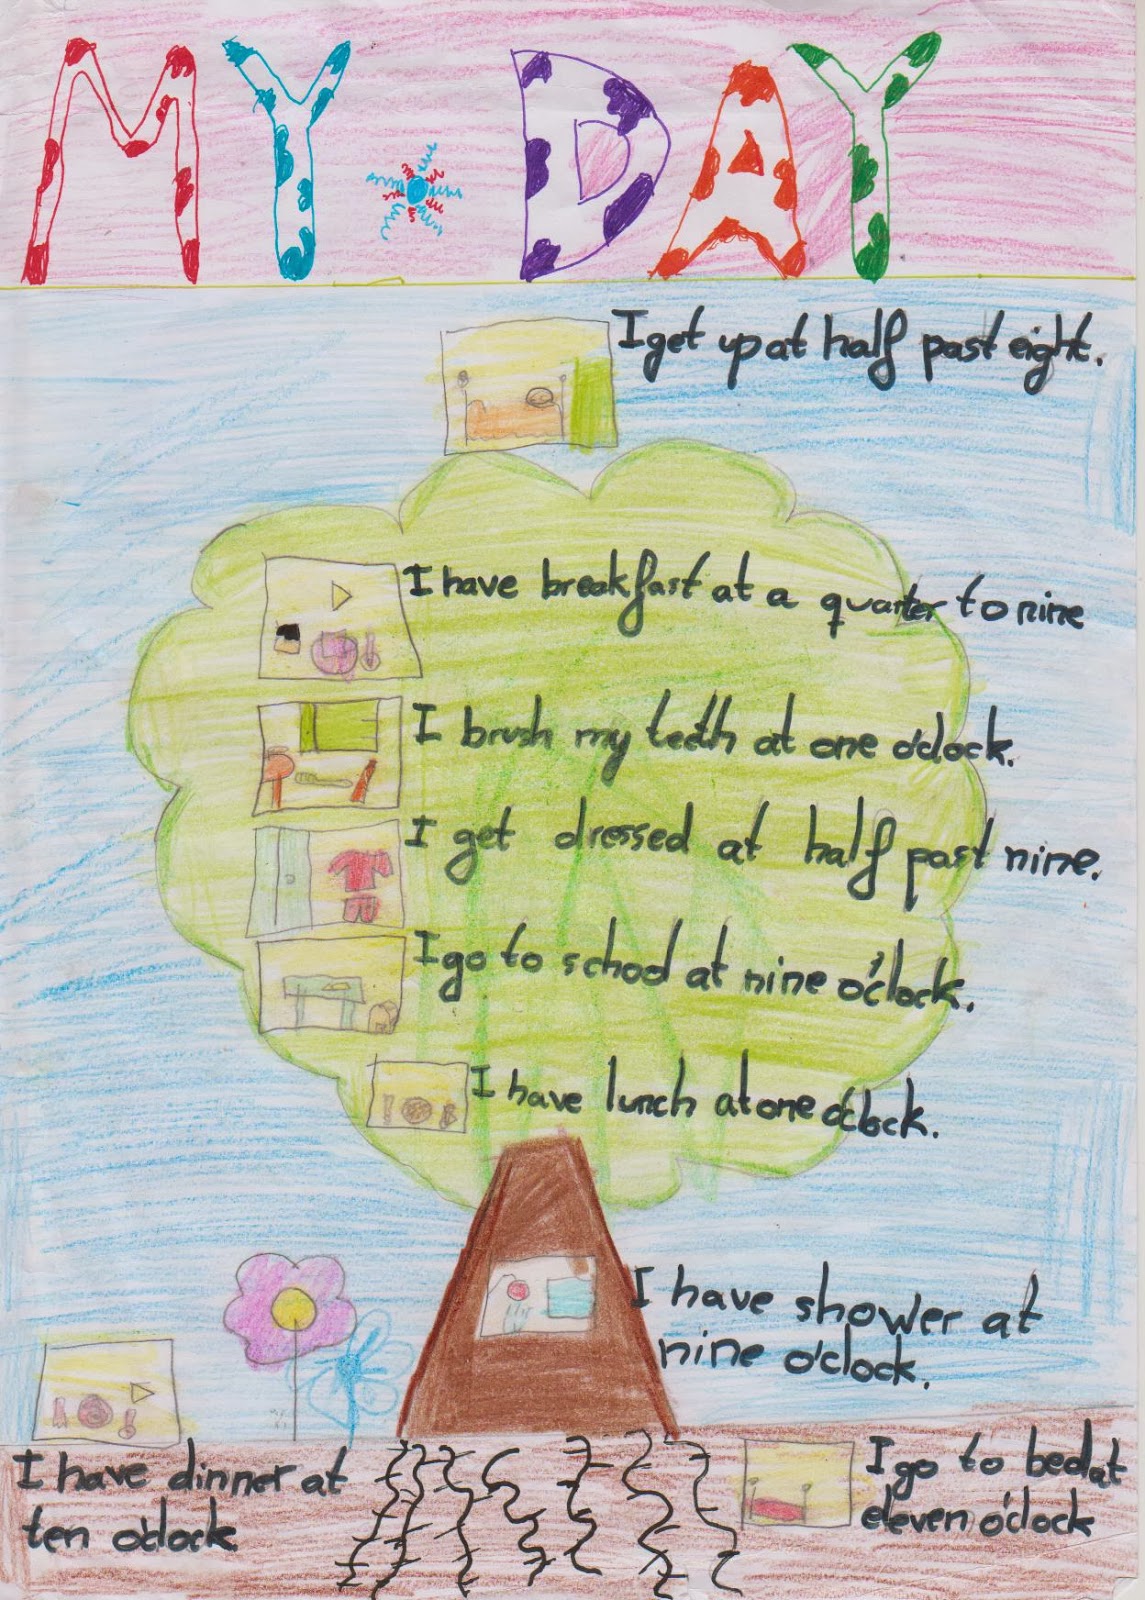 MY DAY
I get up at half past eight.
I have breakfast at a quarter to nine
I brush my teeth at one o'clock.
I get dressed at half past nine.
I go to school at nine o'clock.
I have lunch at one o'clock.
I have shower at
nine o'clock.
I have dinner at
ten o'clock
I go to bed at
eleven o'clock